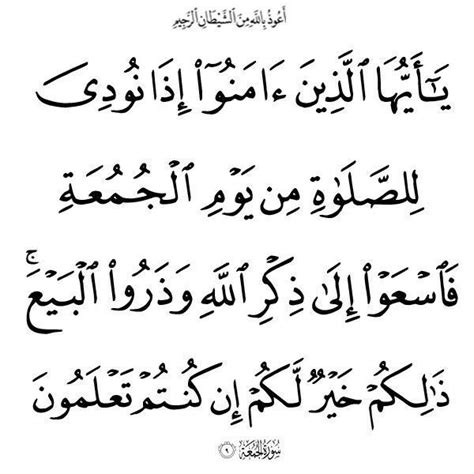 أعوذ بالله من الشيطان الرجيم
يَـٰٓأَيُّهَا ٱلَّذِينَ ءَامَنُوٓا۟ إِذَا نُودِىَ
لِلصَّلَوٰةِ مِن يَوْمِ ٱلْجُمُعَةِ
فَٱسْعَوْا۟ إِلَىٰ ذِكْرِ ٱللَّهِ وَذَرُوا۟ ٱلْبَيْعَ ۚ
ذَٰلِكُمْ خَيْرٌ لَّكُمْ إِن كُنتُمْ تَعْلَمُونَ
سورة الجمعة ٩